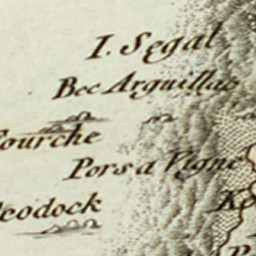 I. Segal
Bec Arguillac
Fourche
Pors a Vigne
eodock